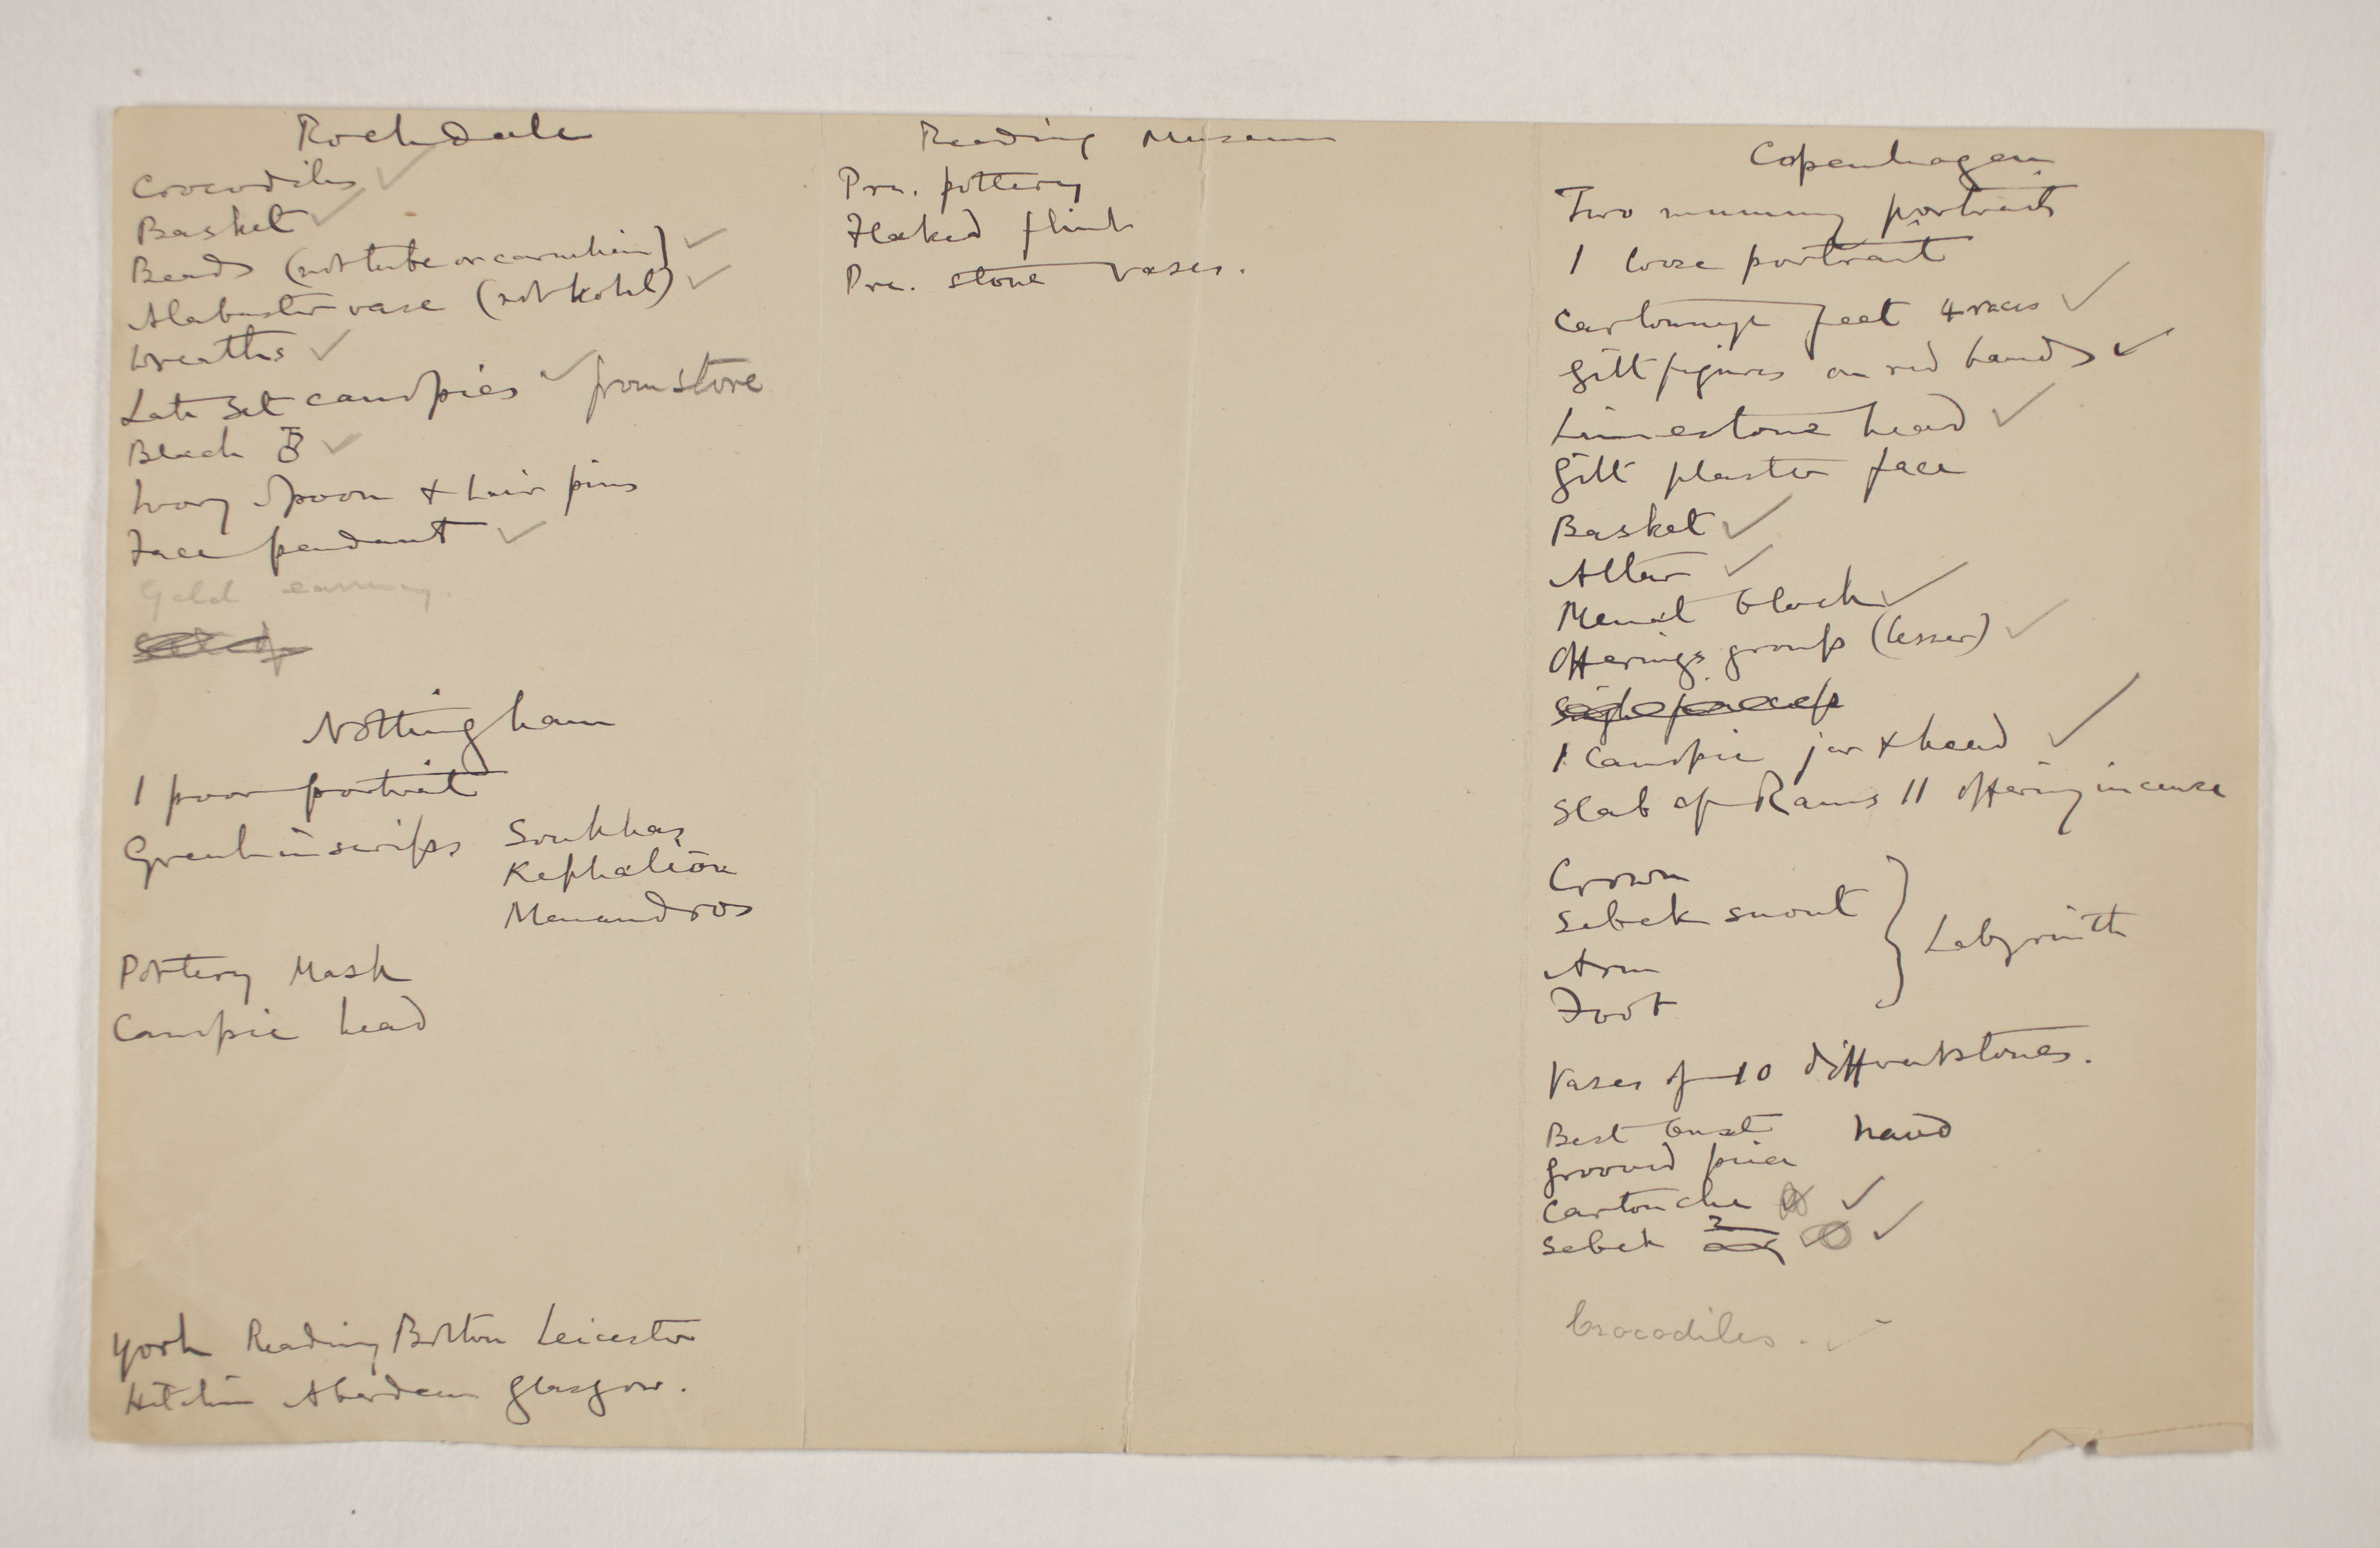 Rochdale
Crocodiles ✓
Basket ✓
Beads (not tube or carnelian) ✓
Alabaster vase (not kohl) ✓
Wreaths ✓
Late set canopics ✓ from store
Black ✓
Ivory spoon & hair pins
Face pendant ✓
Gold earring.
Nottingham
1 poor portrait
Greek inscrips Soukhas
Kephalion
Menandros
Pottery Mask
Canopic head
York Reading Bolton Leicester
Hitchin Aberdeen Glasgow.
Reading Museum
Pre. pottery
Flaked flint
Pre. stone vases.
Copenhagen
Two mummy portraits
1 loose portrait
Cartonnage feet 4 races ✓
Gilt figures on red bands ✓
Limestone head ✓
Gilt plaster face
Basket ✓
Altar ✓
block ✓
Offerings group (lesser) ✓
1 Canopic jar & head ✓
Slab of Rams II offering incense
Crown
Sebek snout
Arm
Foot
Labyrinth
Vases of 10 different stones.
Best bust hand
grooved piece
Cartouche ✓
Sebek ✓
Crocodiles. ✓